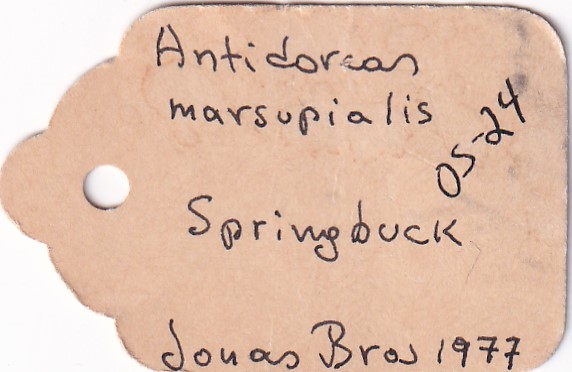 Antidorcas
marsupialis
05-24
Springbuck
Jonas Bros 1977